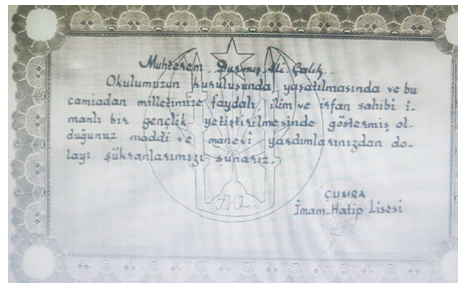 Muhterem Durmuş Ali Çalık
Okulumuzun kuruluşunda, yaşatılmasında ve bu
camiadan milletimize faydalı, ilim ve irfan sahibi i-
manlı bir gençlik yetiştirilmesinde göstermiş ol-
duğunuz maddi ve manevi yardımlarınızdan do-
layı şükranlarımızı sunarız.
ÇUMRA
İmam-Hatip Lisesi